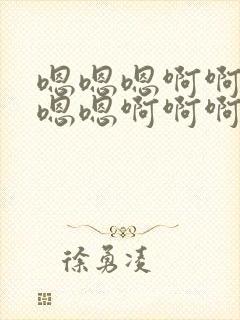 嗯嗯嗯啊啊
嗯嗯啊啊啊
徐勇凌